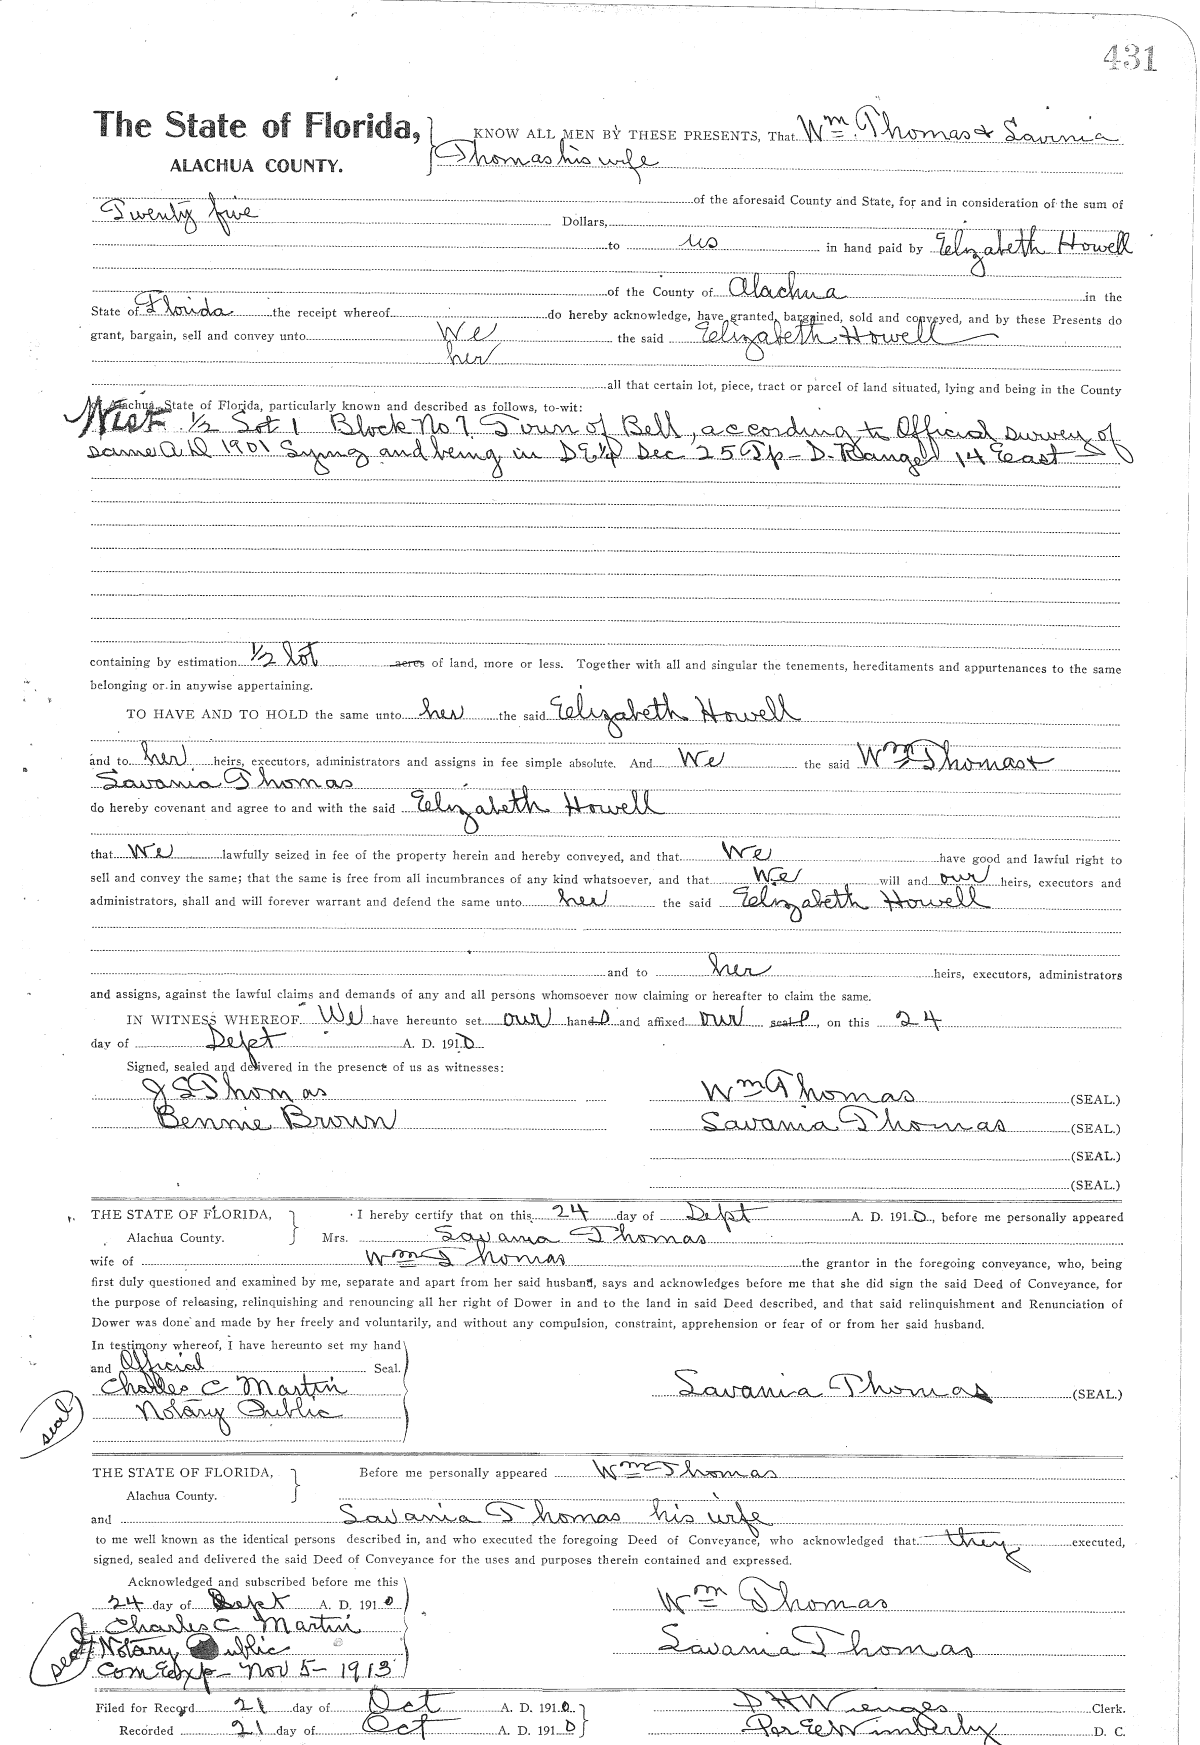 431
The State of Florida, KNOW ALL MEN BY THESE PRESENTS, That Wm. Thomas & Savinia
ALACHUA COUNTY. Thomas his wife
of the aforesaid County and State, for and in consideration of the sum of
Twenty five Dollars,
to us in hand paid by Elizabeth Howell
of the County of Alachua in the
State of Florida the receipt whereof do hereby acknowledge, have granted, bargained, sold and conveyed, and by these Presents do
grant, bargain, sell and convey unto We the said Elizabeth Howell
her
all that certain lot, piece, tract or parcel of land situated, lying and being in the County
Alachua State of Florida, particularly known and described as follows, to-wit:
West 1/2 Lot 1 Block No 7 Town of Bell, according to Official survey of
same A D 1901 Lying and being in Sec 25 Tp - Range 14 East
containing by estimation 1/2 lot acres of land, more or less. Together with all and singular the tenements, hereditaments and appurtenances to the same
belonging or in anywise appertaining.
TO HAVE AND TO HOLD the same unto her the said Elizabeth Howell
and to her heirs, executors, administrators and assigns in fee simple absolute. And We the said Wm Thomas &
Savania Thomas
do hereby covenant and agree to and with the said Elizabeth Howell
that We lawfully seized in fee of the property herein and hereby conveyed, and that We have good and lawful right to
sell and convey the same; that the same is free from all incumbrances of any kind whatsoever, and that We will and our heirs, executors and
administrators, shall and will forever warrant and defend the same unto her the said Elizabeth Howell
and to her heirs, executors, administrators
and assigns, against the lawful claims and demands of any and all persons whomsoever now claiming or hereafter to claim the same.
IN WITNESS WHEREOF We have hereunto set our hands and affixed our seals, on this 24
day of Sept A. D. 1910
Signed, sealed and delivered in the presence of us as witnesses:
J S Thomas Wm Thomas (SEAL.)
Bennie Brown Savania Thomas (SEAL.)
(SEAL.)
(SEAL.)
THE STATE OF FLORIDA, I hereby certify that on this 24 day of Sept A. D. 1910, before me personally appeared
Alachua County. Mrs. Savania Thomas
wife of Wm Thomas the grantor in the foregoing conveyance, who, being
first duly questioned and examined by me, separate and apart from her said husband, says and acknowledges before me that she did sign the said Deed of Conveyance, for
the purpose of releasing, relinquishing and renouncing all her right of Dower in and to the land in said Deed described, and that said relinquishment and Renunciation of
Dower was done and made by her freely and voluntarily, and without any compulsion, constraint, apprehension or fear of or from her said husband.
In testimony whereof, I have hereunto set my hand
and Official Seal.
Charles C Martin Savania Thomas (SEAL.)
Notary Public
seal
THE STATE OF FLORIDA, Before me personally appeared Wm Thomas
Alachua County.
and Savania Thomas his wife
to me well known as the identical persons described in, and who executed the foregoing Deed of Conveyance, who acknowledged that they executed,
signed, sealed and delivered the said Deed of Conveyance for the uses and purposes therein contained and expressed.
Acknowledged and subscribed before me this
24 day of Sept A. D. 1910 Wm Thomas
Charles C. Martin
seal Notary Public Savania Thomas
Com Exp - Nov 5 - 1913
Filed for Record 21 day of Oct A. D. 1910 Clerk.
Recorded 21 day of Oct A. D. 1910 Per E Wimberly D. C.